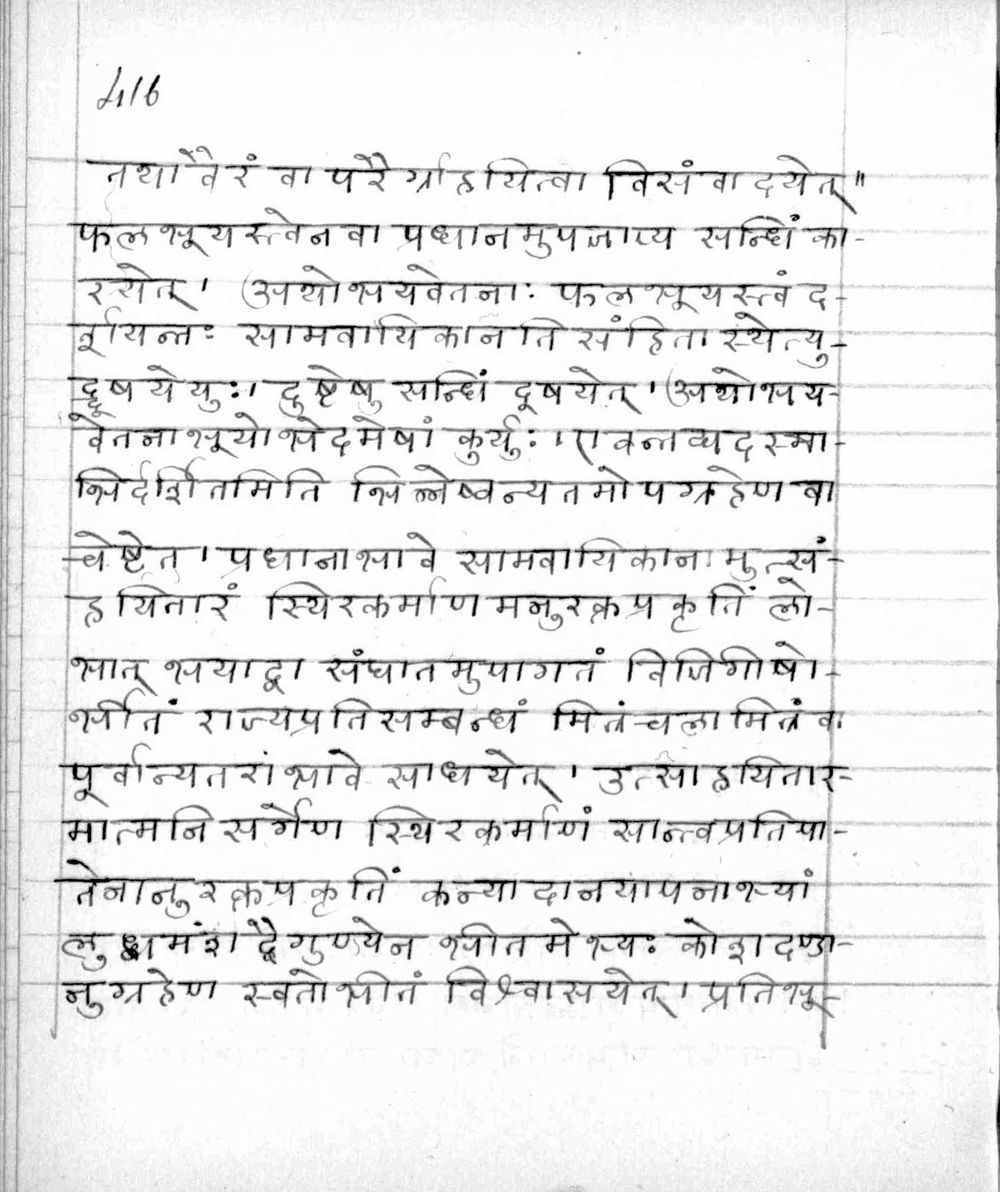 416
तथा वैरं वा परैर्ग्राहयित्वा विसंवादयेत्॥
फलभूयस्त्वेन वा प्रधानमुपजाप्य सन्धिं का-
रयेत्। अथोभयवेतनाः फलभूयस्त्वं द-
र्शयन्तः सामवायिकानतिसंहिता स्थेत्यु-
द्दूषयेयुः। दुष्टेषु सन्धिं दूषयेत्। अथोभय-
वेतना भूयो भेदमेषां कुर्युः। एवन्तद्यदस्मा-
भिर्दर्शितमिति भिन्नेष्वन्यतमोपग्रहेण वा
चेष्टेत। प्रधानाभावे सामवायिकानामुत्सं-
हयितारं स्थिरकर्माणमनुरक्तप्रकृतिं लो-
भात् भयाद्वा संघातमुपागतं विजिगीषो-
र्भीतं राज्यप्रतिसम्बन्धं मित्रं चलामित्रं वा
पूर्वान्यतरांभावे साधयेत्। उत्साहयितार-
मात्मनिसर्गेण स्थिरकर्माणं सान्त्वप्रतिपा-
तेनानुरक्तप्रकृतिं कन्यादानयापनाभ्यां
लुब्धमंशद्वैगुण्येन भीतमेभ्यः कोशदण्डा-
नुग्रहेण स्वतोभीतं विश्वासयेत्। प्रतिभू-